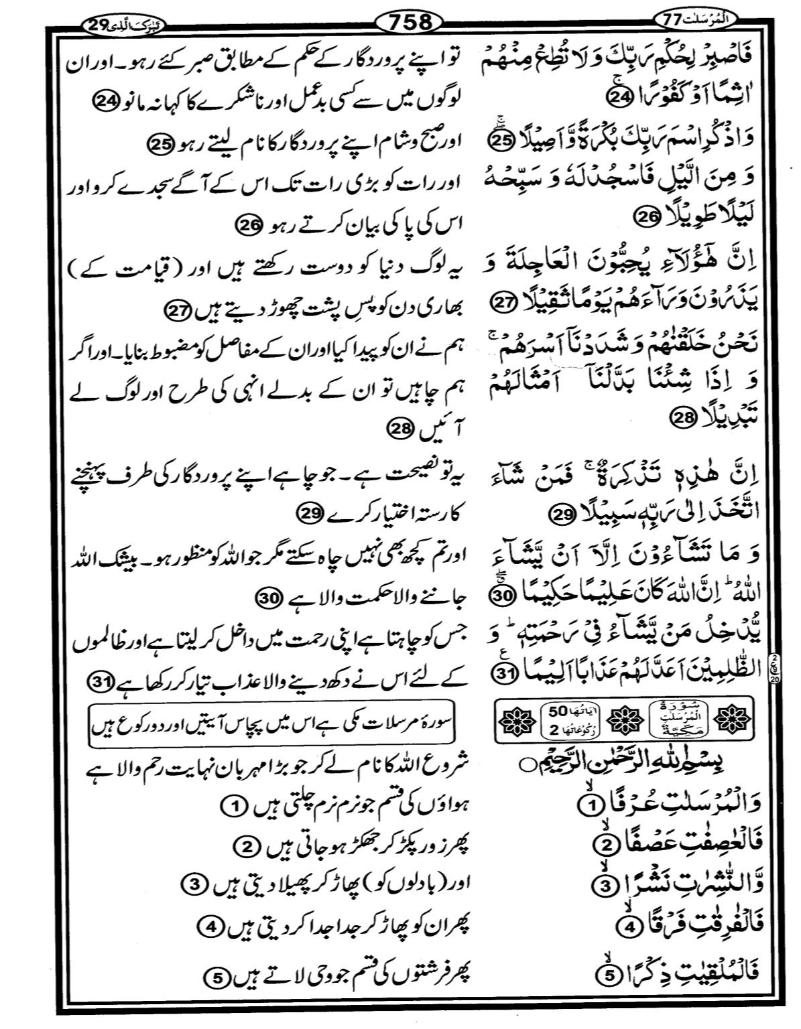 المُرسَلٰت 77
758
تَبٰرَكَ الَّذِی 29
فَاصْبِرْ لِحُكْمِ رَبِّكَ وَ لَا تُطِعْ مِنْهُمْ
اٰثِمًا اَوْ كَفُوْرًاۚ 24
وَ اذْكُرِ اسْمَ رَبِّكَ بُكْرَةً وَّ اَصِیْلًاۖۚ 25
وَ مِنَ الَّیْلِ فَاسْجُدْ لَهٗ وَ سَبِّحْهُ
لَیْلًا طَوِیْلًا 26
اِنَّ هٰۤؤُلَآءِ یُحِبُّوْنَ الْعَاجِلَةَ وَ
یَذَرُوْنَ وَرَآءَهُمْ یَوْمًا ثَقِیْلًا 27
نَحْنُ خَلَقْنٰهُمْ وَ شَدَدْنَاۤ اَسْرَهُمْۚ
وَ اِذَا شِئْنَا بَدَّلْنَاۤ اَمْثَالَهُمْ
تَبْدِیْلًا 28
اِنَّ هٰذِهٖ تَذْكِرَةٌۚ فَمَنْ شَآءَ
اتَّخَذَ اِلٰی رَبِّهٖ سَبِیْلًا 29
وَ مَا تَشَآءُوْنَ اِلَّاۤ اَنْ یَّشَآءَ
اللّٰهُؕ اِنَّ اللّٰهَ كَانَ عَلِیْمًا حَكِیْمًاۗۖ 30
یُّدْخِلُ مَنْ یَّشَآءُ فِیْ رَحْمَتِهٖؕ وَ
الظّٰلِمِیْنَ اَعَدَّ لَهُمْ عَذَابًا اَلِیْمًا 31
تو اپنے پروردگار کے حکم کے مطابق صبر کئے رہو۔ اور ان
لوگوں میں سے کسی بدعمل اور ناشکرے کا کہا نہ مانو 24
اور صبح و شام اپنے پروردگار کا نام لیتے رہو 25
اور رات کو بڑی رات تک اس کے آگے سجدے کرو اور
اس کی پاکی بیان کرتے رہو 26
یہ لوگ دنیا کو دوست رکھتے ہیں اور (قیامت کے)
بھاری دن کو پسِ پشت چھوڑ دیتے ہیں 27
ہم نے ان کو پیدا کیا اور ان کے مفاصل کو مضبوط بنایا۔ اور اگر
ہم چاہیں تو ان کے بدلے انہی کی طرح اور لوگ لے
آئیں 28
یہ تو نصیحت ہے۔ جو چاہے اپنے پروردگار کی طرف پہنچنے
کا رستہ اختیار کرے 29
اور تم کچھ بھی نہیں چاہ سکتے مگر جو اللہ کو منظور ہو۔ بیشک اللہ
جاننے والا حکمت والا ہے 30
جس کو چاہتا ہے اپنی رحمت میں داخل کر لیتا ہے اور ظالموں
کے لئے اس نے دکھ دینے والا عذاب تیار کر رکھا ہے 31
سُوْرَةُ المُرْسَلٰتِ مَكِّیَّةٌ
اٰیَاتُهَا 50
رُكُوْعَاتُهَا 2
سورۂ مرسلات مکی ہے اس میں پچاس آیتیں اور دو رکوع ہیں
بِسْمِ اللّٰهِ الرَّحْمٰنِ الرَّحِیْمِ
وَ الْمُرْسَلٰتِ عُرْفًاۙ 1
فَالْعٰصِفٰتِ عَصْفًاۙ 2
وَّ النّٰشِرٰتِ نَشْرًاۙ 3
فَالْفٰرِقٰتِ فَرْقًاۙ 4
فَالْمُلْقِیٰتِ ذِكْرًاۙ 5
شروع اللہ کا نام لے کر جو بڑا مہربان نہایت رحم والا ہے
ہواؤں کی قسم جو نرم نرم چلتی ہیں 1
پھر زور پکڑ کر جھکڑ ہو جاتی ہیں 2
اور (بادلوں کو) پھاڑ کر پھیلا دیتی ہیں 3
پھر ان کو پھاڑ کر جدا جدا کر دیتی ہیں 4
پھر فرشتوں کی قسم جو وحی لاتے ہیں 5